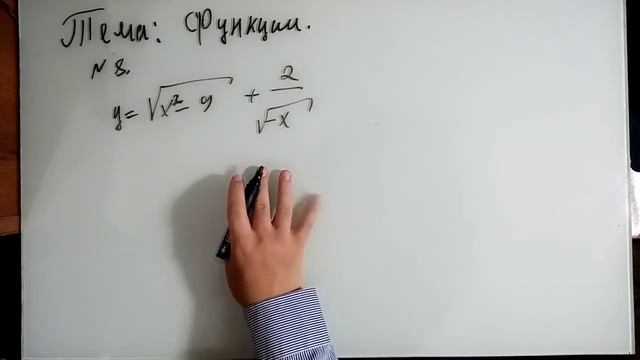 Тема: Функции.
N 8.
y = √(x² - 9) + 2/√(-x)